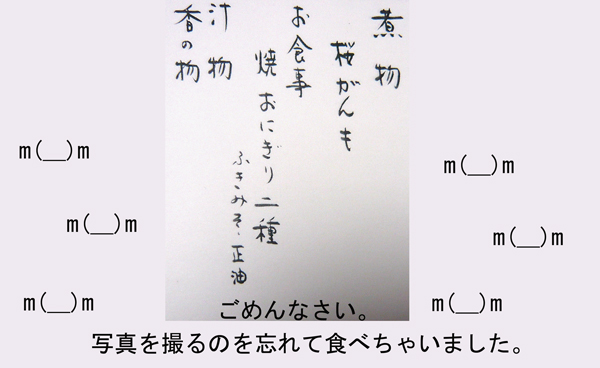 煮物
桜がんも
お食事
焼おにぎり二種
ふきみそ・正油
汁物
香の物
m(__)m
m(__)m
m(__)m
m(__)m
m(__)m
m(__)m
ごめんなさい。
写真を撮るのを忘れて食べちゃいました。